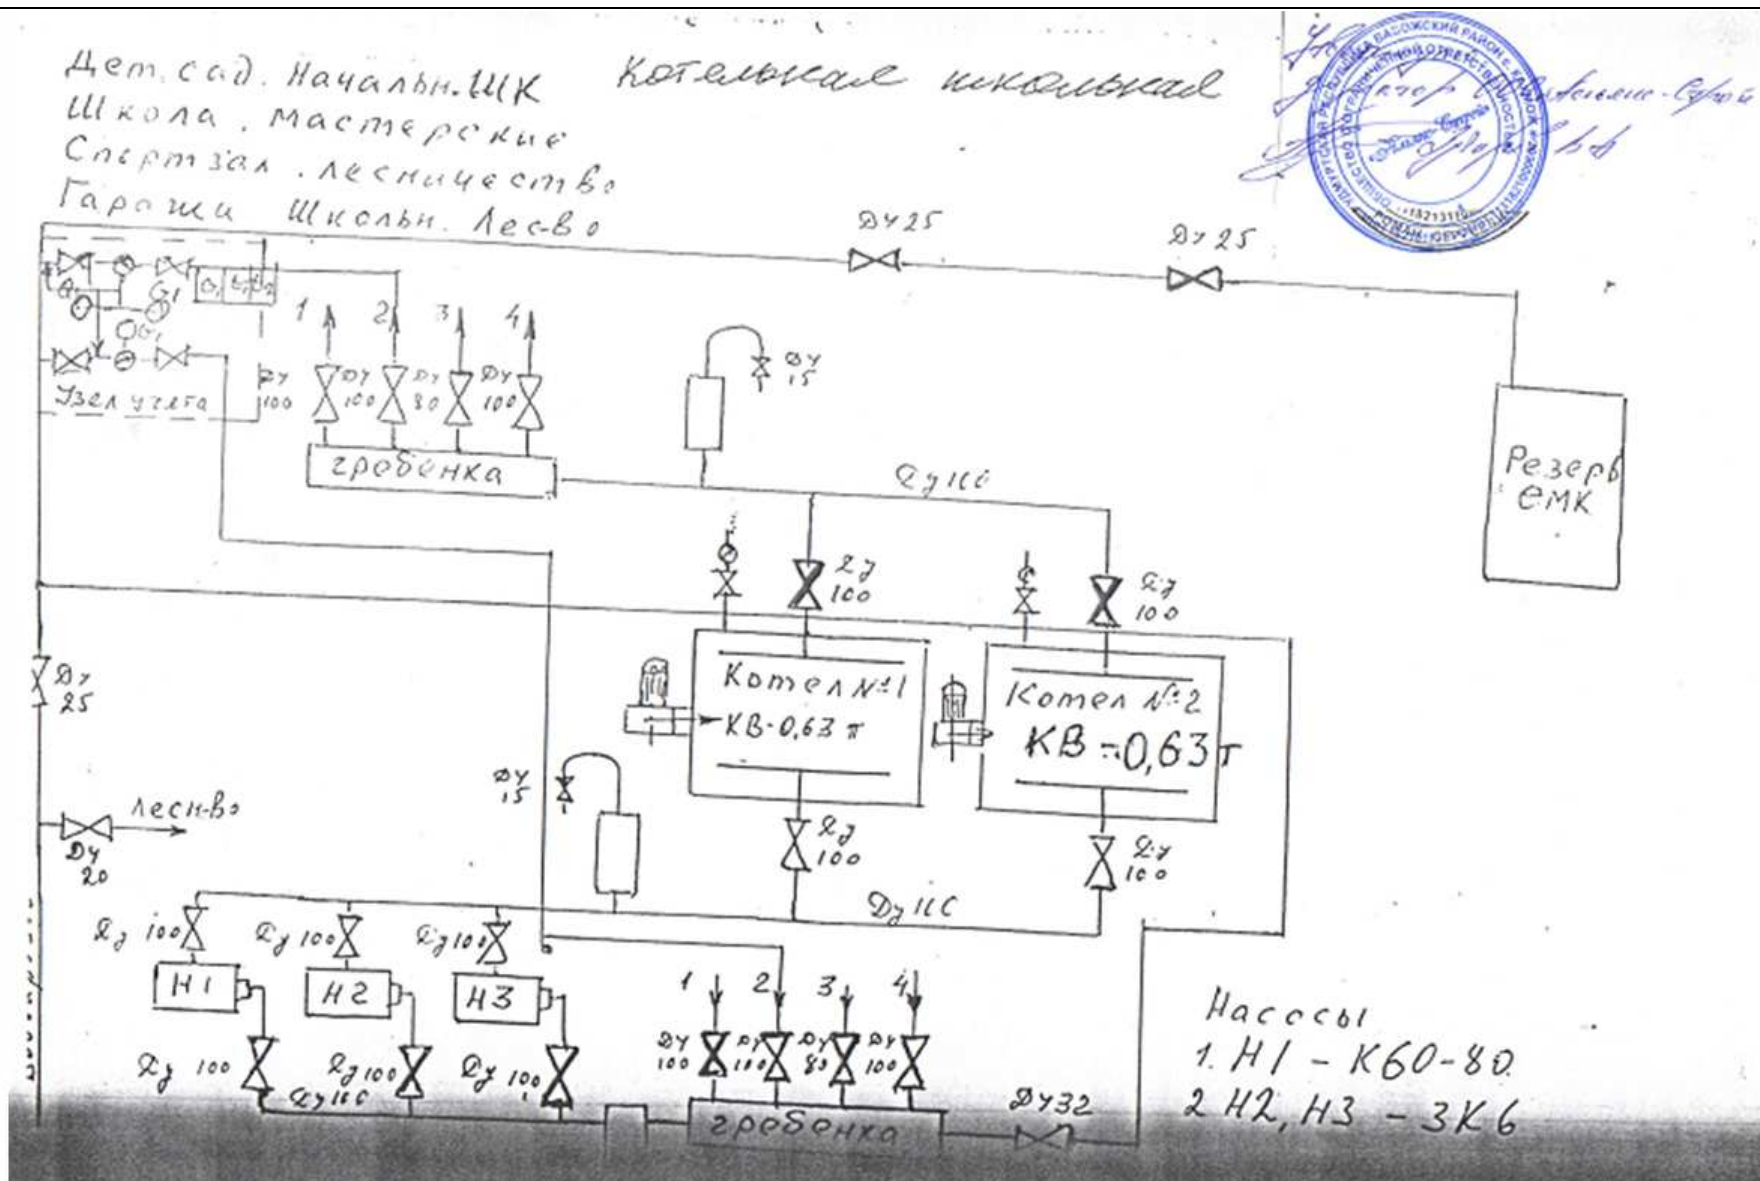 Дет. сад. Начальн. ШК
Школа. мастерские
Спортзал. лесничество
Гаражи Школьн. Лес-во
Котельная школьная
Ду 25
Ду 25
G1
1
2
3
4
Ду 100
Ду 100
Ду 80
Ду 100
Узел учета
гребенка
Ду 15
Резерв
емк
Ду 100
Ду 100
Котел №1
КВ-0,63 т
Котел №2
КВ-0,63 т
Ду 25
Ду 15
лесн-во
Ду 20
Ду 100
Ду 100
Ду 100
Ду 100
Ду 100
Н1
Н2
Н3
1
2
3
4
Ду 100
Ду 100
Ду 80
Ду 100
Ду 100
Ду 100
Ду 100
гребенка
Ду32
Насосы
1. Н1 - К60-80
2 Н2, Н3 - 3К6